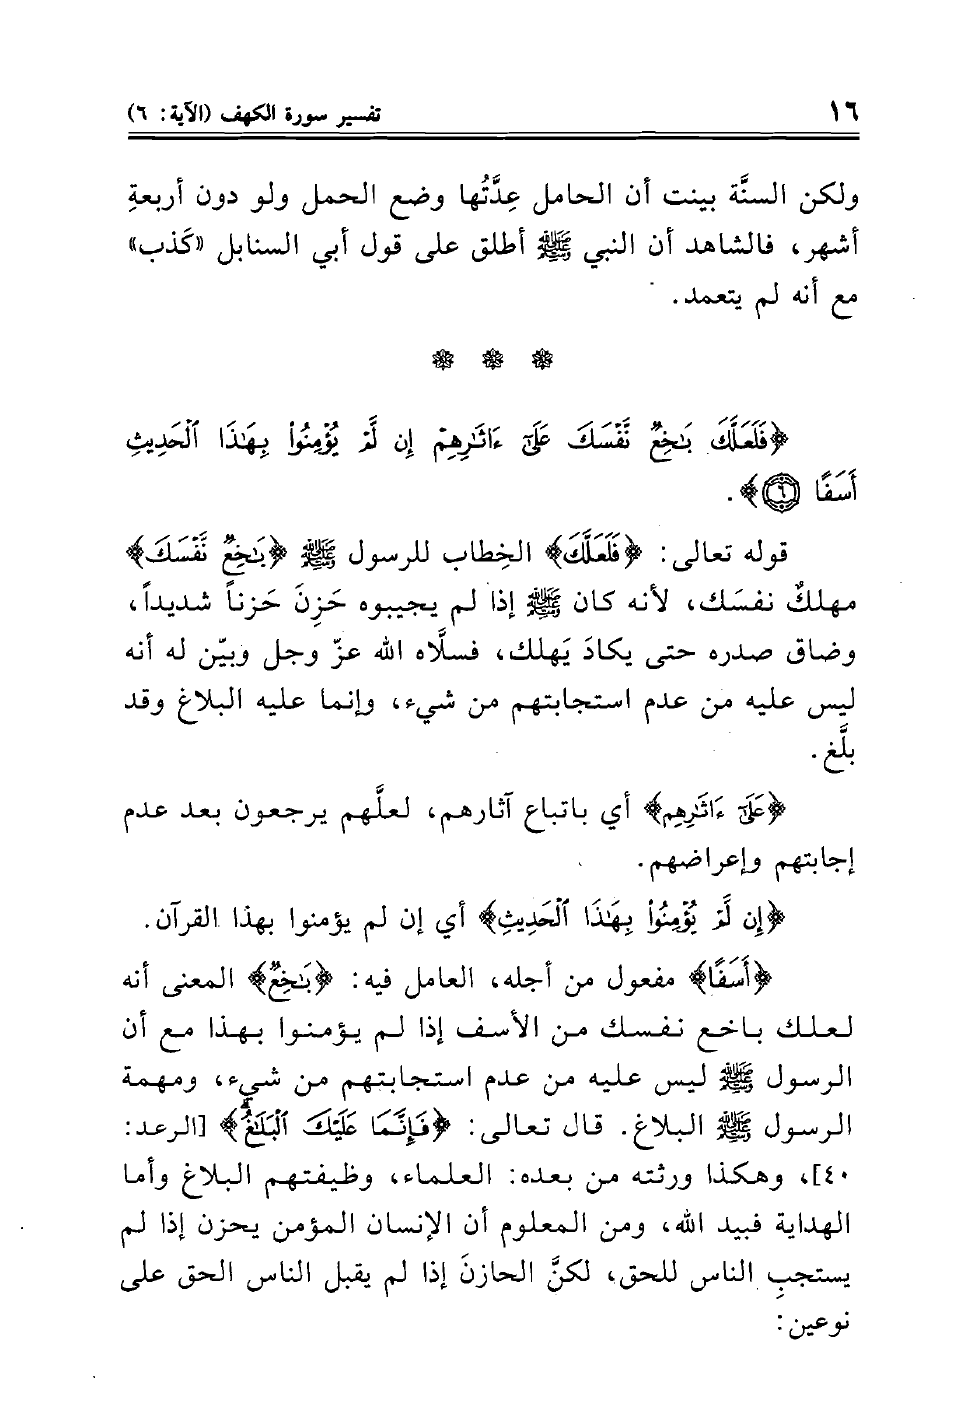 ١٦ تفسير سورة الكهف (الآية: ٦)
ولكن السنَّة بينت أن الحامل عِدَّتُها وضع الحمل ولو دون أربعةِ
أشهر، فالشاهد أن النبي ﷺ أطلق على قول أبي السنابل «كَذب»
مع أنه لم يتعمد.
﴿فَلَعَلَّكَ بَٰخِعٌ نَّفْسَكَ عَلَىٰٓ ءَاثَٰرِهِمْ إِن لَّمْ يُؤْمِنُوا۟ بِهَٰذَا ٱلْحَدِيثِ
أَسَفًا ٦﴾.
قوله تعالى: ﴿فَلَعَلَّكَ﴾ الخِطاب للرسول ﷺ ﴿بَٰخِعٌ نَّفْسَكَ﴾
مهلكٌ نفسَك، لأنه كان ﷺ إذا لم يجيبوه حَزِنَ حَزناً شديداً،
وضاق صدره حتى يكادَ يَهلك، فسلَّاه الله عزّ وجل وبيّن له أنه
ليس عليه من عدم استجابتهم من شيء، وإنما عليه البلاغ وقد
بلَّغ.
﴿عَلَىٰٓ ءَاثَٰرِهِم﴾ أي باتباع آثارهم، لعلَّهم يرجعون بعد عدم
إجابتهم وإعراضهم.
﴿إِن لَّمْ يُؤْمِنُوا۟ بِهَٰذَا ٱلْحَدِيثِ﴾ أي إن لم يؤمنوا بهذا القرآن.
﴿أَسَفًا﴾ مفعول من أجله، العامل فيه: ﴿بَٰخِعٌ﴾ المعنى أنه
لعلك باخع نفسك من الأسف إذا لم يؤمنوا بهذا مع أن
الرسول ﷺ ليس عليه من عدم استجابتهم من شيء، ومهمة
الرسول ﷺ البلاغ. قال تعالى: ﴿فَإِنَّمَا عَلَيْكَ ٱلْبَلَٰغُ﴾ [الرعد:
٤٠]، وهكذا ورثته من بعده: العلماء، وظيفتهم البلاغ وأما
الهداية فبيد الله، ومن المعلوم أن الإنسان المؤمن يحزن إذا لم
يستجبِ الناس للحق، لكنَّ الحازنَ إذا لم يقبل الناس الحق على
نوعين: